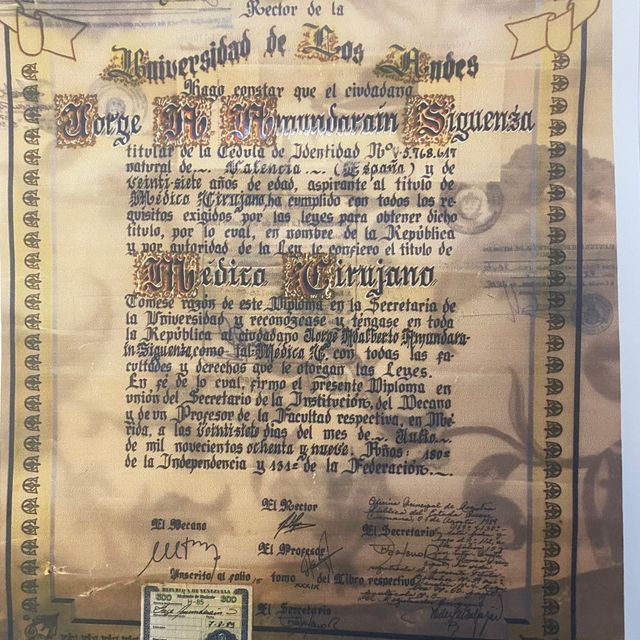 Rector de la
Universidad de Los Andes
Hago constar que el ciudadano
Jorge A. Amundaraín Siguenza
titular de la Cédula de Identidad Nº V-5.768.647
natural de Valencia (España) y de
veinti-siete años de edad, aspirante al título de
Médico Cirujano, ha cumplido con todos los re-
quisitos exigidos por las leyes para obtener dicho
título, por lo cual, en nombre de la República
y por autoridad de la Ley le confiero el título de
Médico Cirujano
Tómese razón de este Diploma en la Secretaría de
la Universidad y reconózcase y téngase en toda
la República al ciudadano Jorge Adalberto Amundara-
ín Siguenza, como tal Médico C. con todas las fa-
cultades y derechos que le otorgan las Leyes.
En fé de lo cual, firmo el presente Diploma en
unión del Secretario de la Institución, del Decano
y de un Profesor de la Facultad respectiva, en Mé-
rida, a los veintisiete días del mes de Julio
de mil novecientos ochenta y nueve. Años: 180º
de la Independencia y 131º de la Federación
El Rector
El Decano
El Secretario
El Profesor
Inscrito al folio 15 tomo XXXIX del Libro respectivo
El Secretario
REPUBLICA DE VENEZUELA
500 500